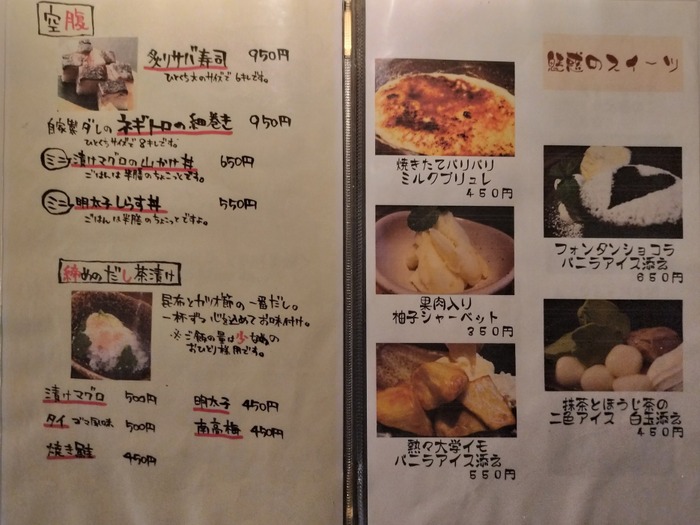 空腹
炙りサバ寿司 950円
ひとくち大のサイズで6キレです。
自家製ダレのネギトロの細巻き 950円
ひとくちサイズで8キレです。
ミニ 漬けマグロの山かけ丼 650円
ごはんは半膳のちょこっとです。
ミニ 明太子しらす丼 550円
ごはんは半膳のちょこっとですよ。
締めのだし茶漬け
昆布とカツオ節の一番だし。
一杯ずつ心を込めてお味付け。
※ご飯の量は少な目の
おひとり様用です。
漬けマグロ 500円
タイ ゴマ風味 500円
焼き鮭 450円
明太子 450円
南高梅 450円
魅惑のスイーツ
焼きたてパリパリ
ミルクブリュレ
450円
果肉入り
柚子シャーベット
350円
熱々大学イモ
バニラアイス添え
550円
フォンダンショコラ
バニラアイス添え
650円
抹茶とほうじ茶の
二色アイス 白玉添え
450円